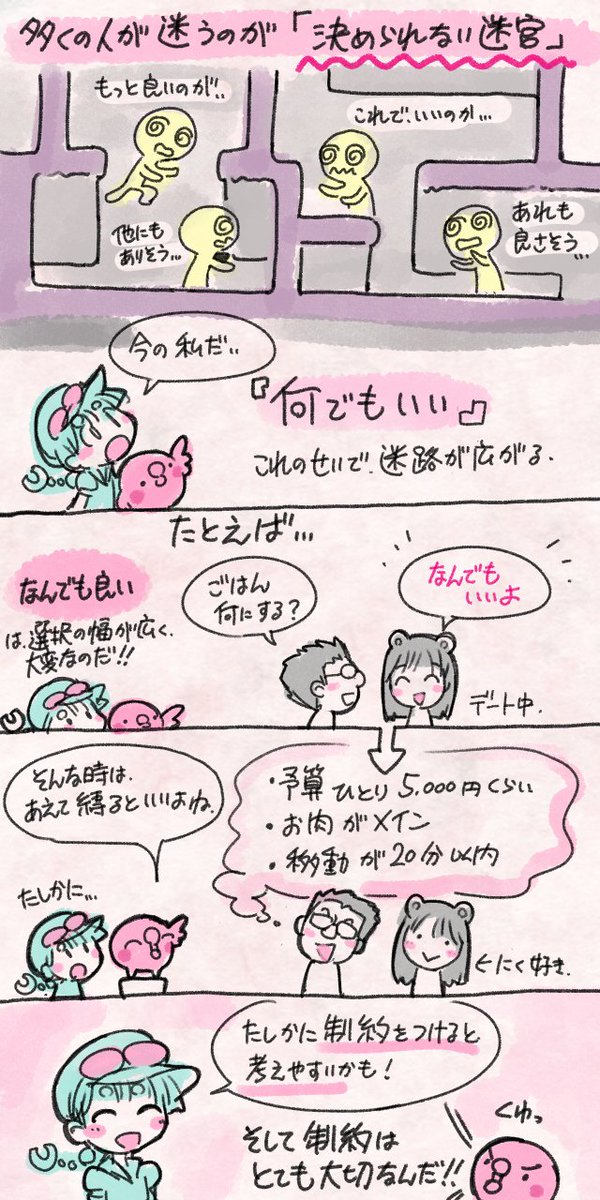 多くの人が迷うのが「決められない迷宮」
もっと良いのが..
これで、いいのか...
他にも
ありそう...
あれも
良さそう...
今の私だ..
『何でもいい』
これのせいで、迷路が広がる.
たとえば...
なんでも良い
は、選択の幅が広く、
大変なのだ!!
ごはん
何にする?
なんでも
いいよ
デート中.
そんな時は、
あえて縛るといいよね.
・予算 ひとり 5,000円くらい
・お肉がメイン
・移動が20分以内
たしかに...
にく好き.
たしかに制約をつけると
考えやすいかも!
そして制約は
とても大切なんだ!!
くゆっ